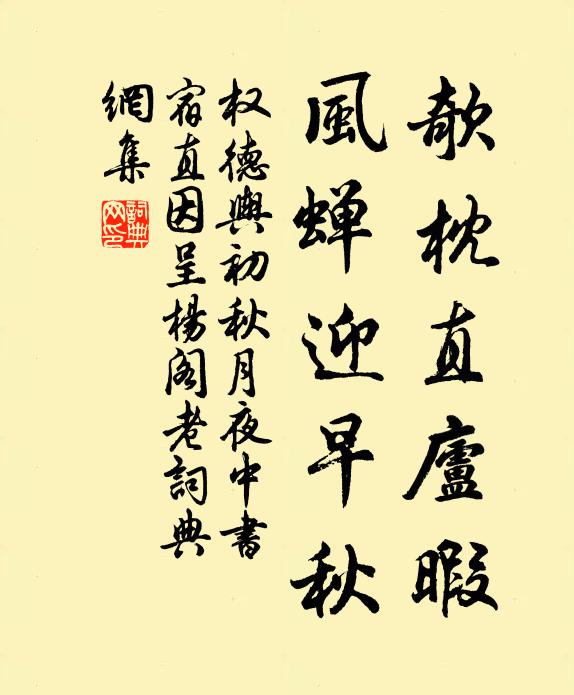 欹枕直廬暇
風蟬迎早秋
权德輿初秋月夜中書
宿直因呈楊阁老詞典
網集
詞典
网印